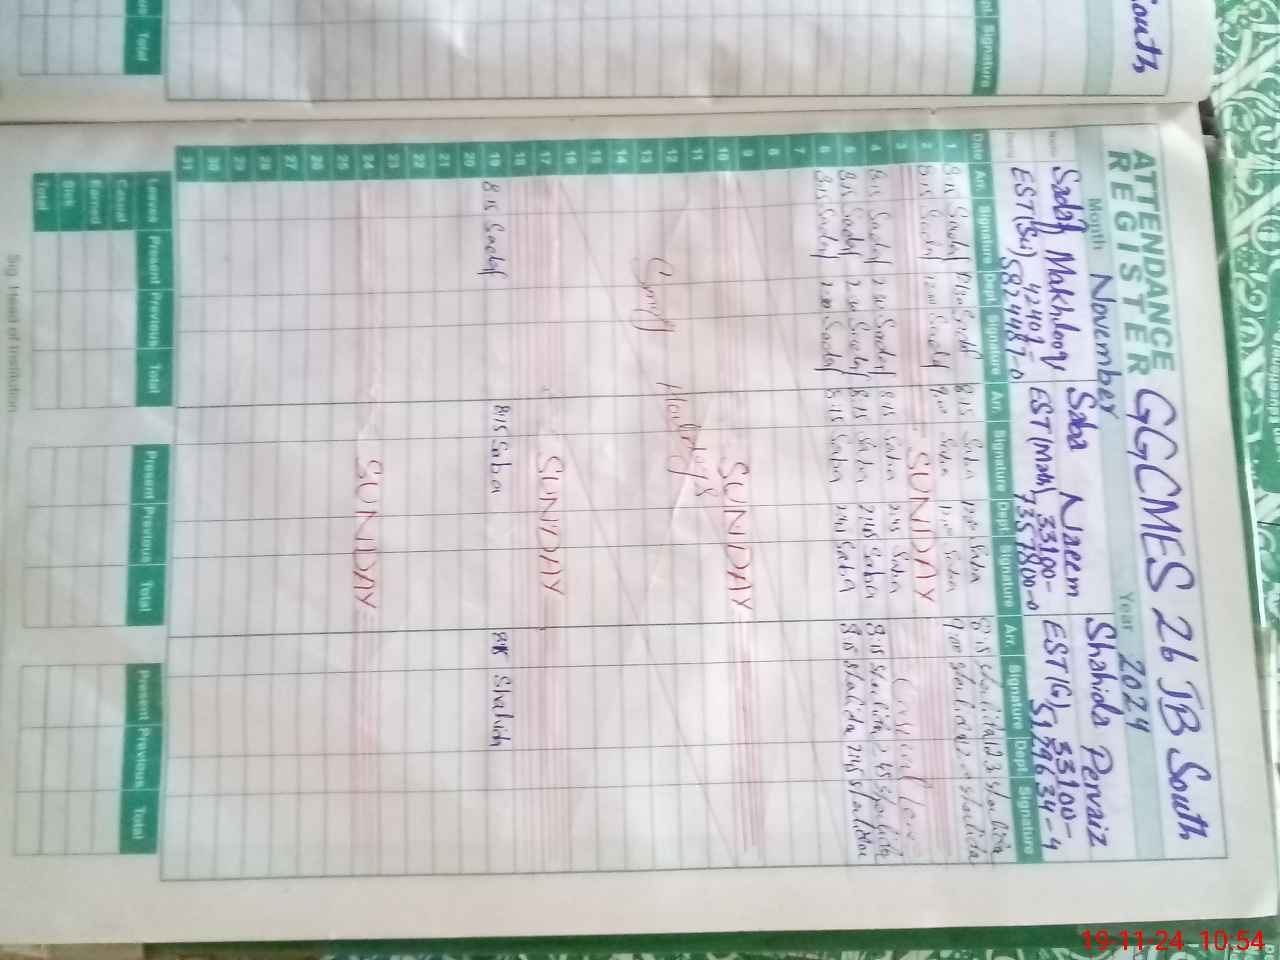 ATTENDANCE REGISTER GGCMES 26 JB South
Month November Year 2024
Sadaf Makhdoom Saba Naeem Shahida Pervaiz
EST(Sci) 42401- EST(Math) 33100- EST(G)- 33100-
5824487-0 7357800-0 5129634-4
Date Arr. Signature Dept Signature Arr. Signature Dept Signature Arr. Signature Dept Signature
1 8:15 Sadaf Sadaf 8:15 Saba Saba 8:15 Shahida Shahida
2 8:15 Sadaf 12:00 Sadaf 9:00 Saba 12:00 Saba 9:00 Shahida Shahida
3 SUNDAY
4 8:15 Sadaf 2:30 Sadaf 8:15 Saba 2:45 Saba Casual Leave
5 8:15 Sadaf 2:30 Sadaf 8:15 Saba 2:45 Saba 8:15 Shahida 2:45 Shahida
6 8:15 Sadaf 2:30 Sadaf 8:15 Saba 2:45 Saba 8:15 Shahida 2:45 Shahida
7
8
9
10 SUNDAY
11
12 Smog Holidays
13
14
15
16
17 SUNDAY
18
19 8:15 Sadaf 8:15 Saba 8:15 Shahida
20
21
22
23
24 SUNDAY
25
26
27
28
29
30
31
Leaves Present Previous Total Present Previous Total Present Previous Total
Casual
Earned
Sick
Total
Sig. Head of Institution
South
Signature
Total
19-11-24 10:54